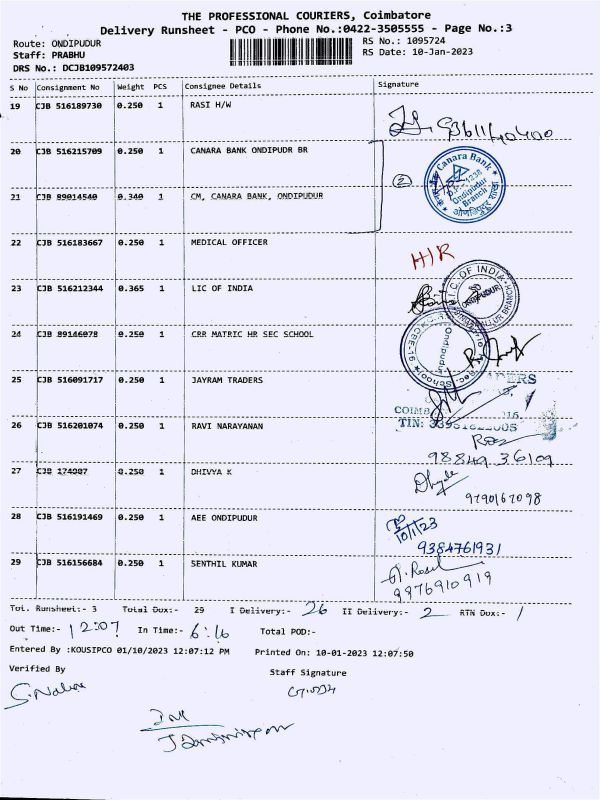 THE PROFESSIONAL COURIERS, Coimbatore
Delivery Runsheet - PCO - Phone No.:0422-3505555 - Page No.:3
Route: ONDIPUDUR
Staff: PRABHU
DRS No.: DCJB109572403
RS No.: 1095724
RS Date: 10-Jan-2023
S No Consignment No Weight PCS Consignee Details Signature
19 CJB 516189730 0.250 1 RASI H/W
20 CJB 516215709 0.250 1 CANARA BANK ONDIPUDR BR
Canara Bank
Ondipudur
Branch
21 CJB 89014540 0.340 1 CM, CANARA BANK, ONDIPUDUR
2
22 CJB 516183667 0.250 1 MEDICAL OFFICER
H/R
23 CJB 516212344 0.365 1 LIC OF INDIA
L.I.C. OF INDIA
ONDIPUDUR
24 CJB 89146078 0.250 1 CRR MATRIC HR SEC SCHOOL
Ondipudur
CBE-16
25 CJB 516091717 0.250 1 JAYRAM TRADERS
COIMB
TIN:
26 CJB 516201074 0.250 1 RAVI NARAYANAN
98849 36109
27 CJB 174907 0.250 1 DHIVYA K
9790167098
28 CJB 516191469 0.250 1 AEE ONDIPUDUR
10/1/23
9384761931
29 CJB 516156684 0.250 1 SENTHIL KUMAR
9976910919
Tot. Runsheet:- 3 Total Dox:- 29 I Delivery:- 26 II Delivery:- 2 RTN Dox:- 1
Out Time:- 12:07 In Time:- 6:16 Total POD:-
Entered By :KOUSIPCO 01/10/2023 12:07:12 PM Printed On: 10-01-2023 12:07:50
Verified By Staff Signature